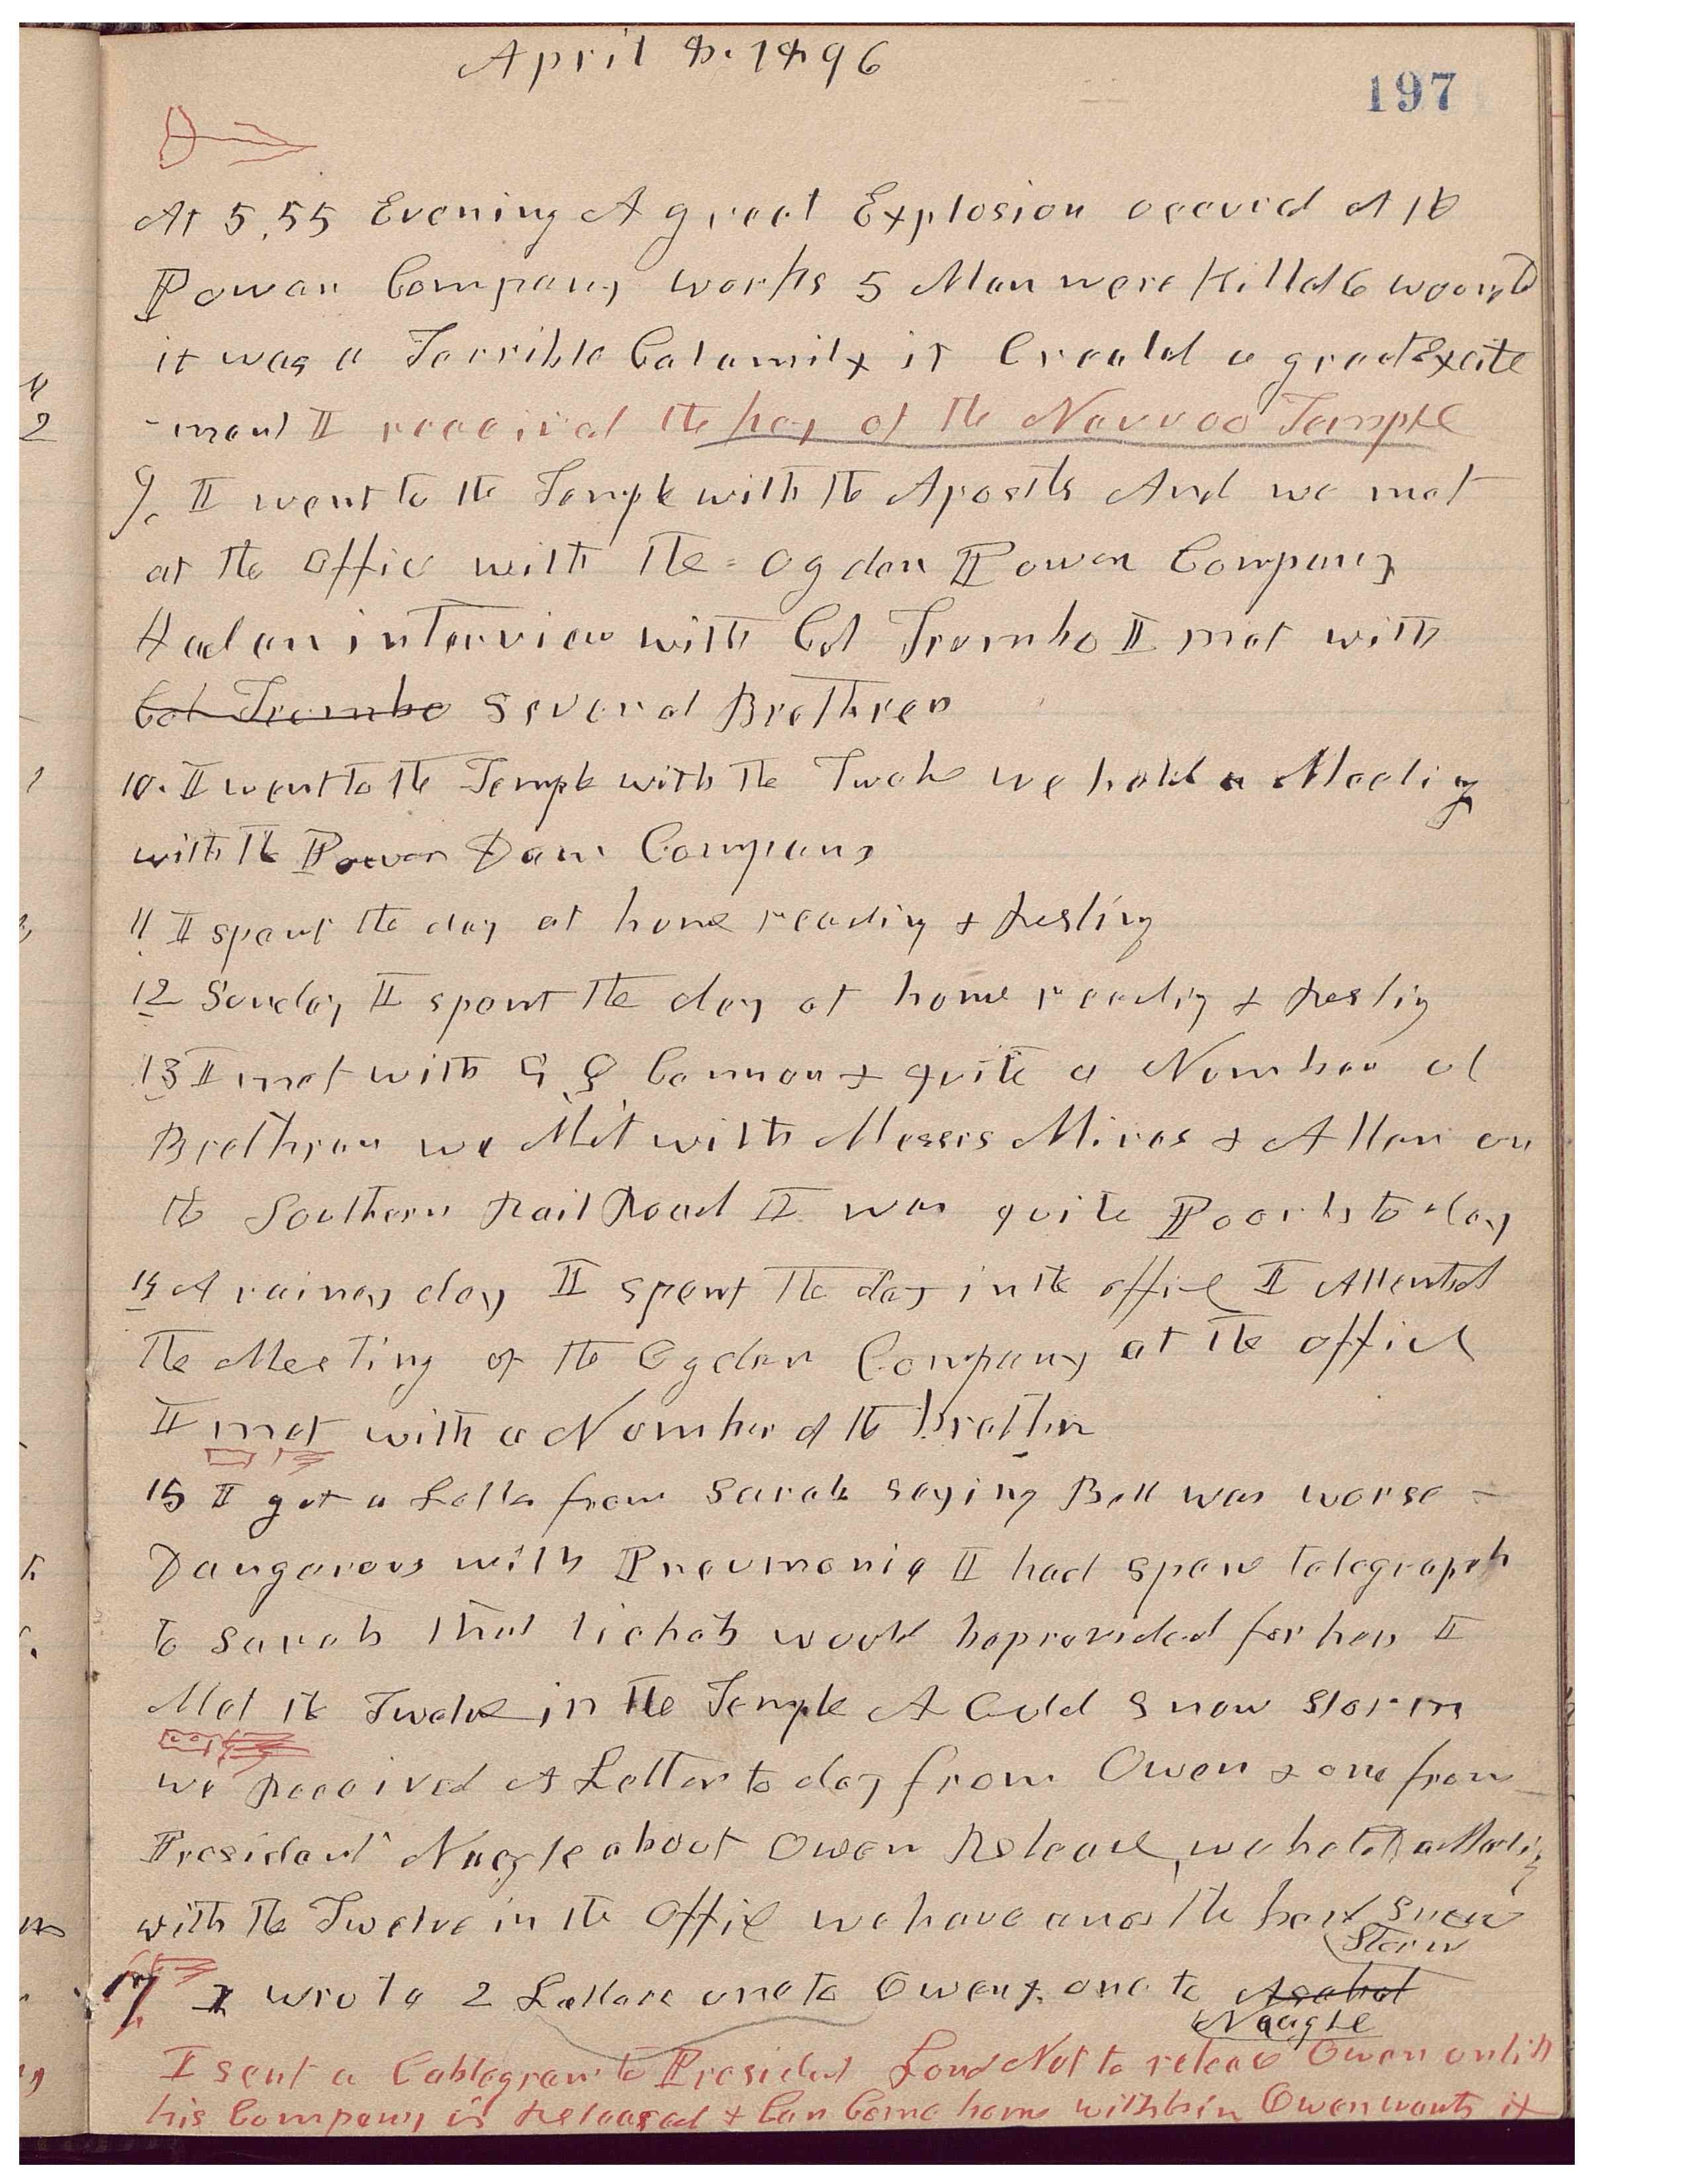 April 8. 1896
197
At 5.55 Evening A great Explosion occurd at the
Power Company works 5 Men were Killed 6 wound
it was a Terrible Calamity it Created a great Excite
-ment I received the key of the Nauvoo Temple
9. I went to the Temple with the Apostls And we met
at the office with the Ogden Power Company
Had an interview with Col Trombo I met with
Col Trombo several Brethren
10. I went to the Temple with the Twelve we held a Meeting
with the Power Dam Company
11 I spent the day at home reading & Resting
12 Sunday I spent the day at home reading & Resting
13 I met with G Q Cannon & quite a Number of
Brethren we Met with Messrs Mires & Allen on
the Southern Rail Road I was quite Poorly to day
14 A rainey day I spent the day in the office I Attended
the Meeting of the Ogden Company at the office
I met with a Number of the brethren
15 I got a Letter from Sarah saying Bell was worse
Dangerous with Pneumonia I had telegraph
to Sarah that tickets would be provided for her I
Met the Twelve in the Temple A Cold Snow Storm
we Received A Letter to day from Owen & one from
President Naegle about Owen Release, we held a Meeting
with the Twelve in the Office we have another hard Snow
Storm
17 I wrote 2 Letters one to Owen & one to Asahel
Naagle
I sent a Cablegram to President Lund Not to release Owen untill
his Company is Released & Can Come home with him Owen wants it